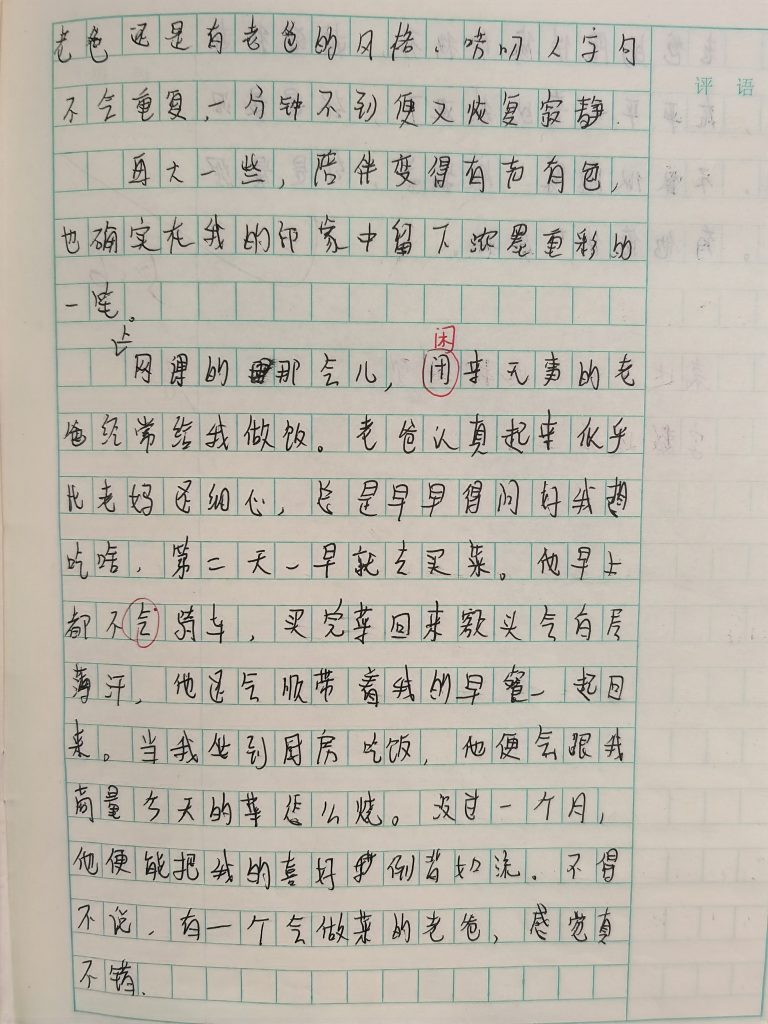 老爸还是有老爸的风格，唠叨人字句
评语
不会重复，一分钟不到便又恢复寂静.
再大一些，陪伴变得有声有色，
也确实在我的印象中留下浓墨重彩的
一笔。
上
闲
网课的那会儿，闭来无事的老
爸经常给我做饭。老爸认真起来似乎
比老妈还细心，总是早早得问好我想
吃啥，第二天一早就去买菜。他早上
都不会骑车，买完菜回来额头会有层
薄汗，他还会顺带着我的早餐一起回
来。当我坐到厨房吃饭，他便会跟我
商量今天的菜怎么烧。没过一个月，
他便能把我的喜好倒背如流。不得
不说，有一个会做菜的老爸，感觉真
不错.